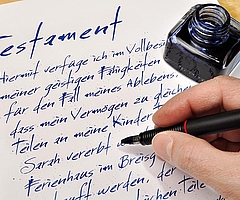 Testament
Hiermit verfüge ich im Vollbesi
meiner geistigen Fähigkeiten
für den Fall meines Ablebens,
dass mein Vermögen zu gleichen
Teilen an meine Kinder
Sarah vererbt w
Ferienhaus im Breisg
werden, der
Teile